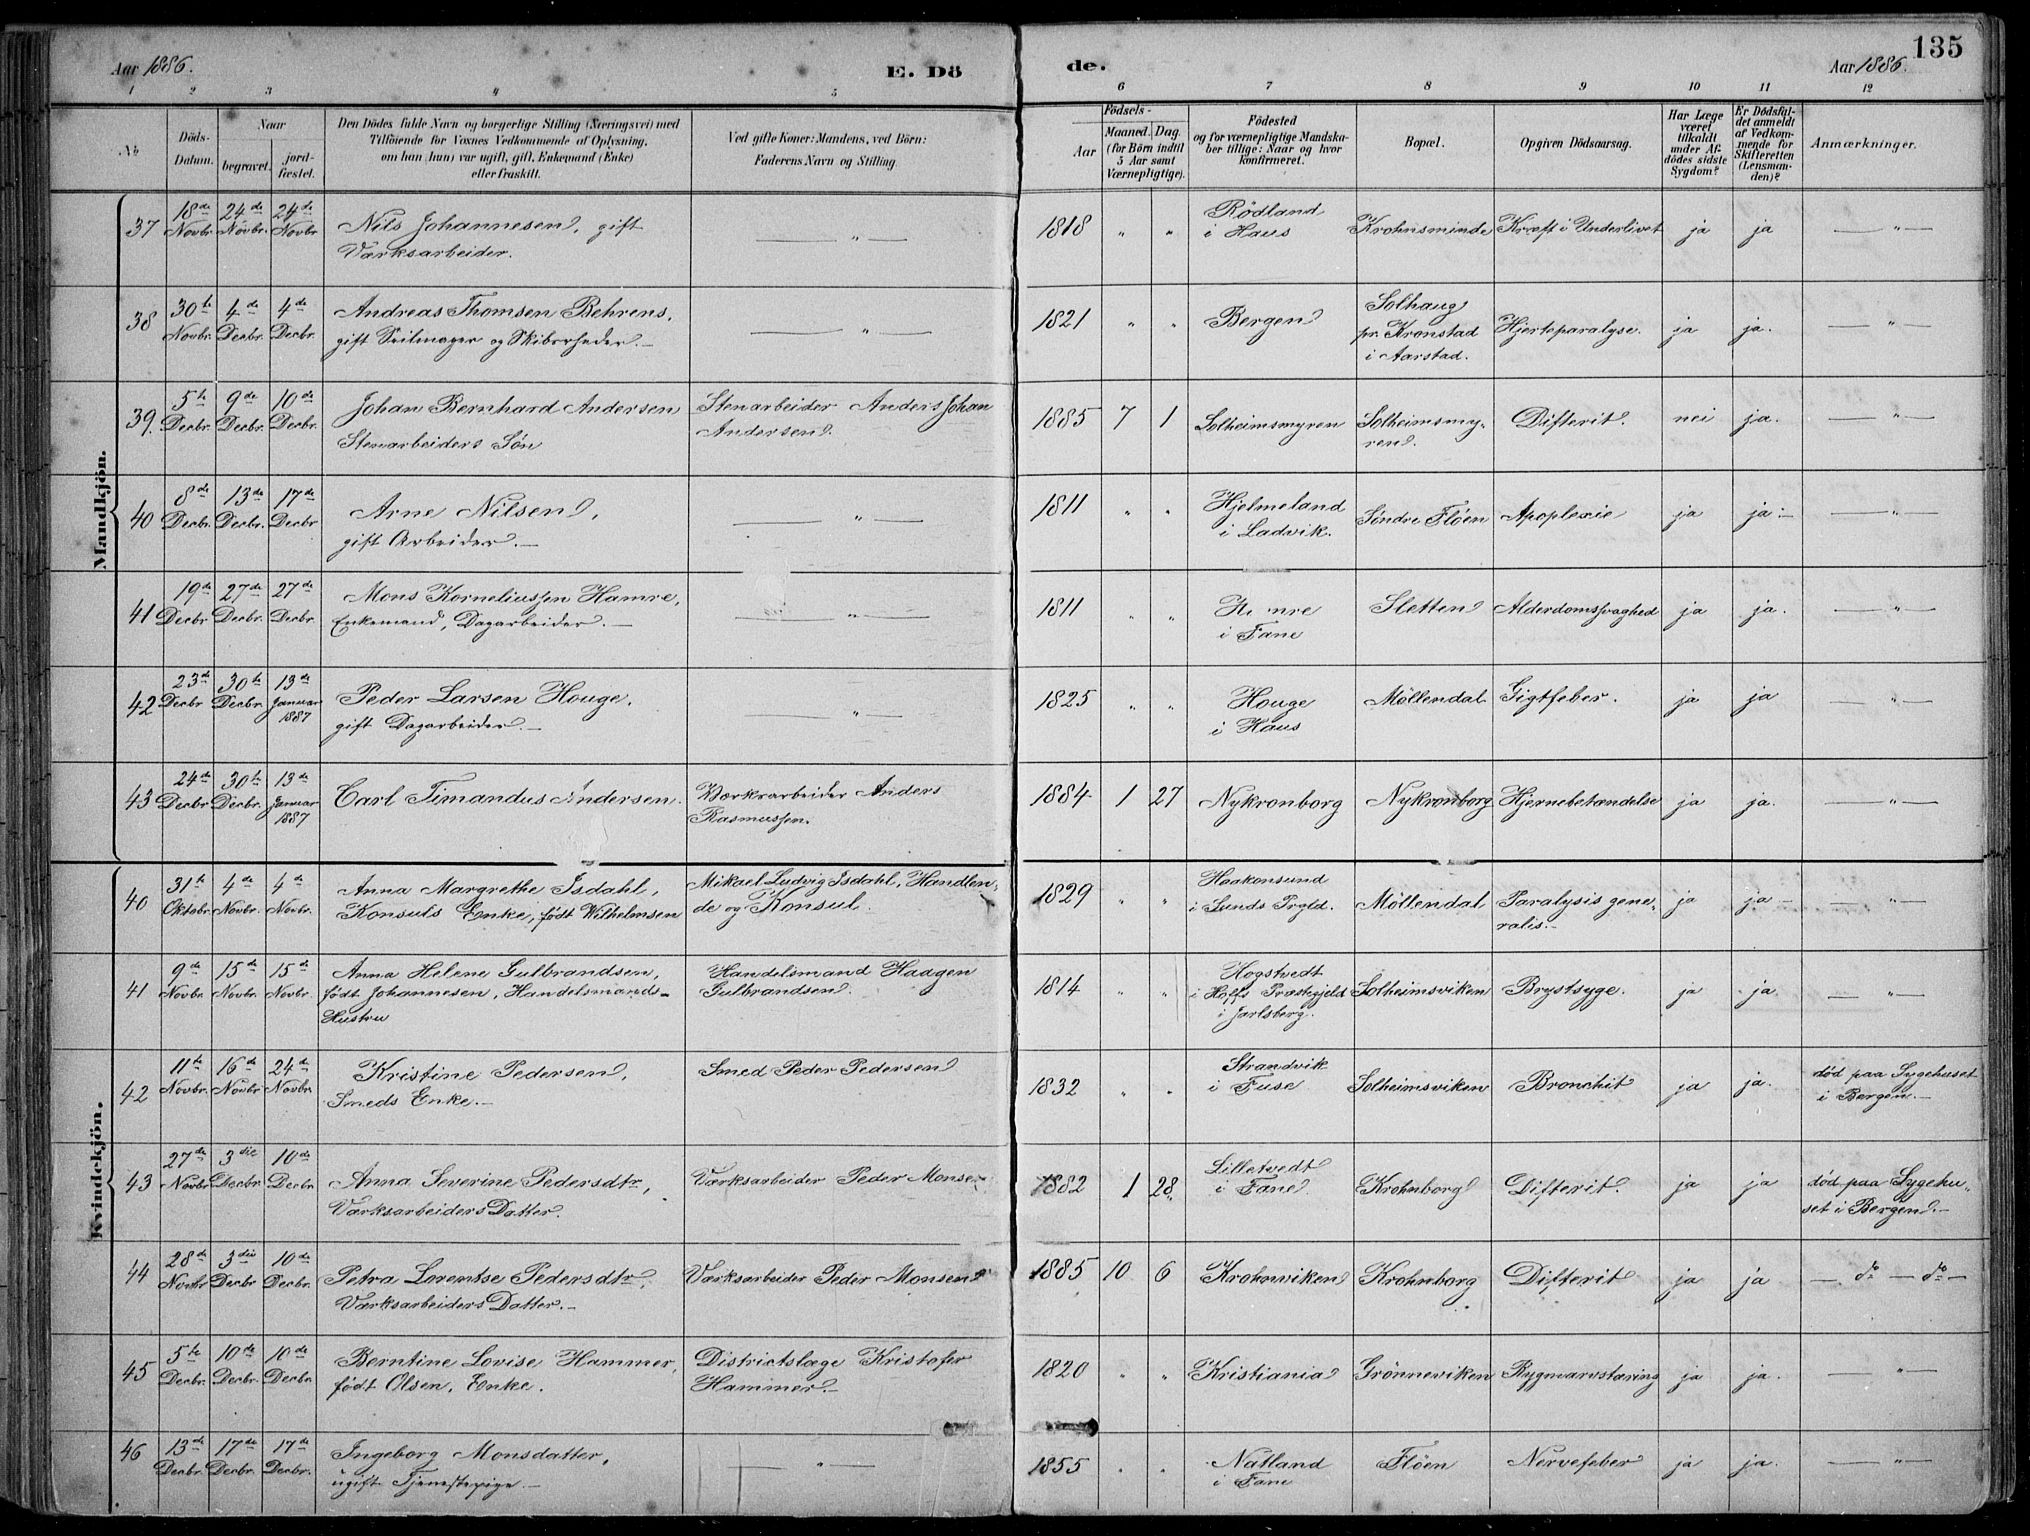 135
Aar 1886.
E. Dö
de.
Aar 1886.
1 2 3 4 5 6 7 8 9 10 11 12
No
Döds-
Datum.
Naar
begravet.
jord-
fæstet.
Den Dödes fulde Navn og borgerlige Stilling (Næringsvei) med
Tilföiende for Voxnes Vedkommende af Oplysning,
om han (hun) var ugift, gift, Enkemand (Enke)
eller fraskilt.
Ved gifte Koner: Mandens, ved Börn:
Faderens Navn og Stilling.
Födsels-
Aar
Maaned. Dag.
(for Börn indtil
5 Aar samt
Værnepligtige).
Födested
og for værnepligtige Mandska-
ber tillige: Naar og hvor
konfirmeret.
Bopæl.
Opgiven Dödsaarsag.
Har Læge
været
tilkaldt
under Af-
dödes sidste
Sygdom?
Er Dödsfal-
det anmeldt
af Vedkom-
mende for
Skifteretten
(Lensman-
den)?
Anmærkninger.
Mandkjön.
37 18de 24de 24de Nils Johannesen, gift — " — 1818 " " Rödland Krohnsminde Kræft i Underlivet ja ja — " —
Novbr. Novbr. Novbr i Haus
Værksarbeider.
38 30te 4de 4de Andreas Thomsen Behrens, — " — 1821 " " Bergen Solhaug Hjerteparalyse. ja ja. — " —
Novbr. Decbr. Decbr. gift Seilmager og Skibsrheder.— pr. Kronstad
i Aarstad.
39. 5te 9de 10de Johan Bernhard Andersen Stenarbeider Anders Johan 1885 7 1 Solheimsmyren Solheimsmy- Difterit. nei ja. — " —
Decbr. Decbr. Decbr. Stenarbeiders Sön Andersen. ren.
40 8de 13de 17de Arne Nilsen, — " — 1811 " " Hjelmeland Söndre Flöen Apoplexie ja ja.— — " —
Decbr. Decbr. Decbr gift Arbeider.— i Ladvik.
41 19de 27de 27de Mons Korneliussen Hamre, — " — 1811 " " Sletten Alderdomssvaghed ja ja. — " —
Decbr Decbr. Decbr. Enkemand, Dagarbeider.— i Fane
42 23de 30te 13de Peder Larsen Houge, — " — 1825 " " Houge Möllendal Gigtfeber. ja ja — " —
Decbr Decbr. Januar gift Dagarbeider.— i Haus
1887
43 24de 30te 13de Carl Timandus Andersen. Værksarbeider Anders 1884 1 27 Nykronborg Nykronborg Hjernebetændelse ja ja. — " —
Decbr Decbr. Januar Rasmussen.
1887
Kvindekjön.
40 31te 4de 4de Anna Margrethe Isdahl, Mikael Ludvig Isdahl, Handlen- 1829 " " Haakonsund Möllendal Paralysis gene- ja ja — — " —
Oktobr. Novbr. Novbr. Konsuls Enke, født Wilhelmsen de og Konsul. i Sunds Prgld. ralis.—
41 9de 15de 15de Anna Helene Gulbrandsen, Handelsmand Haagen 1814 " " Hogstvedt Solheimsviken Brystsyge. ja ja. — " —
Novbr. Novbr. Novbr. født Johannesen, Handelsmands- Gulbrandsen. i Hoffs Præstegjeld
Hustru i Jarlsberg.
42 11te 16de 24de Kristine Pedersen, Smed Peder Pedersen 1832 " " Strandvik Solheimsviken Bronchit ja ja. død paa Sygehuset
Novbr. Novbr Novbr. Smeds Enke.— i Fuse i Bergen.—
43 27de 3die 10de Anna Severine Pedersdtr, Værksarbeider Peder Monse 1882 1 28 Lilletvedt Krohnborg Difterit. ja ja død paa Sygehu-
Novbr Decbr. Decbr Værksarbeiders Datter. i Fane. set i Bergen.—
44 28de 3die 10de Petra Lorentse Pedersdtr. Værksarbeider Peder Monsen 1885 10 6 Krohnviken Krohnborg Difterit ja ja — do — do —
Novbr Decbr Decbr. Værksarbeiders Datter.—
45 5te 10de 10de Berntine Lovise Hammer, Districtslæge Kristofer 1820 " " Kristiania Grönneviken Rygmarvstæring ja ja. — " —
Decbr. Decbr. Decbr. født Olsen, Enke. Hammer.—
46 13de 17de 17de Ingeborg Monsdatter, — " — 1855 " " Natland Flöen Nervefeber ja ja. — " —
Decbr. Decbr. Decbr. ugift Tjenestepige.— i Fane